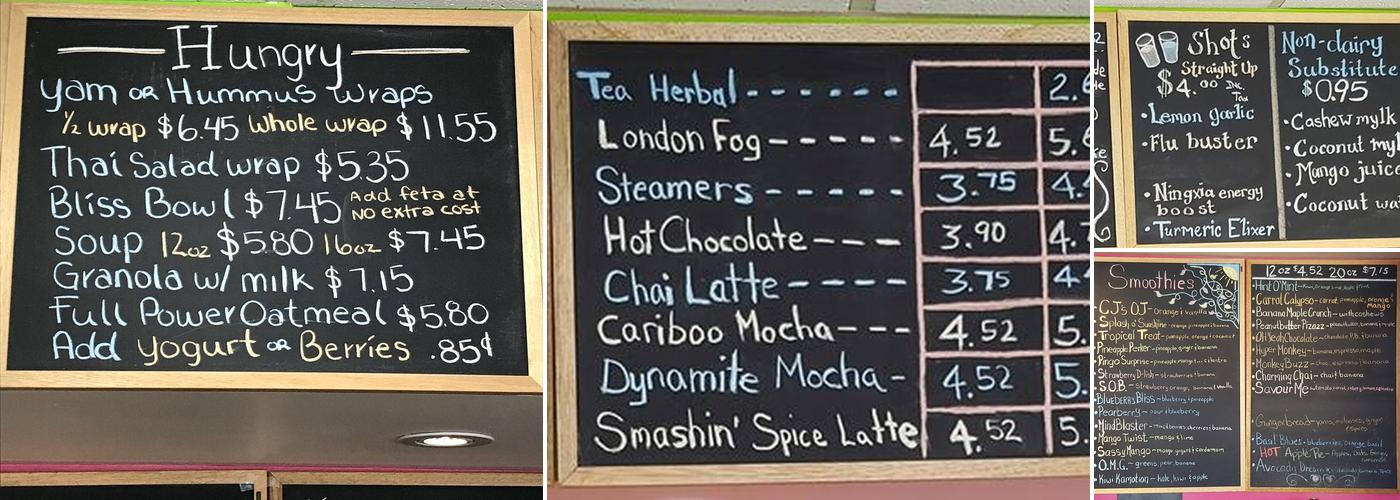 Hungry
Yam or Hummus Wraps
1/2 wrap $6.45 Whole wrap $11.55
Thai Salad wrap $5.35
Bliss Bowl $7.45 Add feta at
No extra cost
Soup 12oz $5.80 16oz $7.45
Granola w/ milk $7.15
Full Power Oatmeal $5.80
Add yogurt or Berries .85¢
Tea Herbal ------ 2.6
London Fog ----- 4.52 5.6
Steamers ----- 3.75 4.
Hot Chocolate --- 3.90 4.7
Chai Latte ---- 3.75 4
Cariboo Mocha --- 4.52 5.
Dynamite Mocha - 4.52 5.
Smashin' Spice Latte 4.52 5.
Shots
Straight Up
$4.00 Inc.
Tax
•Lemon garlic
•Flu buster
•Ningxia energy
boost
•Turmeric Elixer
Non-dairy
Substitute
$0.95
•Cashew mylk
•Coconut myl
•Mango juice
•Coconut wa
Smoothies
•CJ's OJ - orange & vanilla
•Splash o' Sunshine - orange
•Tropical Treat - pineapple, orange & coconut
•Pineapple Perker - pineapple, ginger & banana
•Pingo Surprise - pineapple, mango & cilantro
•Strawberry D-lish - strawberries & banana
•S.O.B. - strawberry, orange, banana & vanilla
•Blueberry Bliss - blueberry & pineapple
•Pearberry - pear & blueberry
•MindBlaster
•Mango Twist - mango & lime
•Sassy Mango - mango, yogurt & cardamom
•O.M.G. - greens, pear, banana
•Kiwi Kamotion - kale, kiwi & apple
12oz $4.52 20oz $7.15
•Hint O'Mint
•Carrot Calypso - carrot, pineapple, orange &
mango
•Banana Maple Crunch - with cashews
•Peanutbutter Pizazz
•Oh Yeah Chocolate
•Hyper Monkey - banana, espresso, maple
•Monkey Buzz - choc, espresso & banana
•Charming Chai - chai & banana
•Savour Me
•Gingerbread
•Basil Blues - blueberries, orange, basil
•HOT Apple Pie
•Avocado Dream